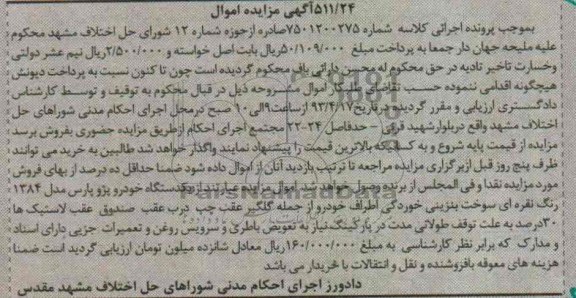 ۵۱۱/۲۴آگهی مزایده اموال
بموجب پرونده اجرائی کلاسه شماره ۷۵۰۱۲۰۰۲۷۵صادره ازحوزه شماره ۱۲ شورای حل اختلاف مشهد محکوم
علیه ملیحه جهان دار جمعا به پرداخت مبلغ ۵۰/۱۰۹/۰۰۰ریال بابت اصل خواسته و ۲/۵۰۰/۰۰۰ریال نیم عشر دولتی
وخسارت تاخیر تادیه در حق محکوم له محسن دارائی باف محکوم گردیده است چون تا کنون نسبت به پرداخت دیونش
هیچگونه اقدامی ننموده حسب تقاضای طلبکار اموال مشروحه ذیل در قبال محکوم به توقیف و توسط کارشناس
دادگستری ارزیابی و مقرر گردیده درتاریخ ۹۳/۴/۱۷ ازساعت ۹الی ۱۰ صبح درمحل اجرای احکام مدنی شوراهای حل
اختلاف مشهد واقع دربلوارشهید قرنی حدفاصل ۲۴-۲۲ مجتمع اجرای احکام ازطریق مزایده حضوری بفروش برسد
مزایده از قیمت پایه شروع و به کسیکه بالاترین قیمت را پیشنهاد نمایند واگذار خواهد شد طالبین به خرید می توانند
ظرف پنج روز قبل ازبرگزاری مزایده مراجعه تا ترتیب بازدید آنان از اموال داده شود ضمنا حداقل ده درصد از بهای فروش
مورد مزایده نقدا و فی المجلس از برنده وصول خواهد شد اموال مزایده عبارتند از یکدستگاه خودرو پژو پارس مدل ۱۳۸۴
رنگ نقره ای سوخت بنزینی خوردگی اطراف خودرو از جمله گلگیر عقب چپ درب عقب صندوق عقب لاستیک ها
۳۰درصد به علت توقف طولانی مدت در پارکینگ نیاز به تعویض باطری و سرویس روغن و تعمیرات جزیی دارای اسناد
و مدارک که برابر نظر کارشناسی به مبلغ ۱۶۰/۰۰۰/۰۰۰ریال معادل شانزده میلون تومان ارزیابی گردید است ضمنا
هزینه های معوقه بافروشنده و نقل و انتقالات با خریدار می باشد
دادورز اجرای احکام مدنی شوراهای حل اختلاف مشهد مقدس